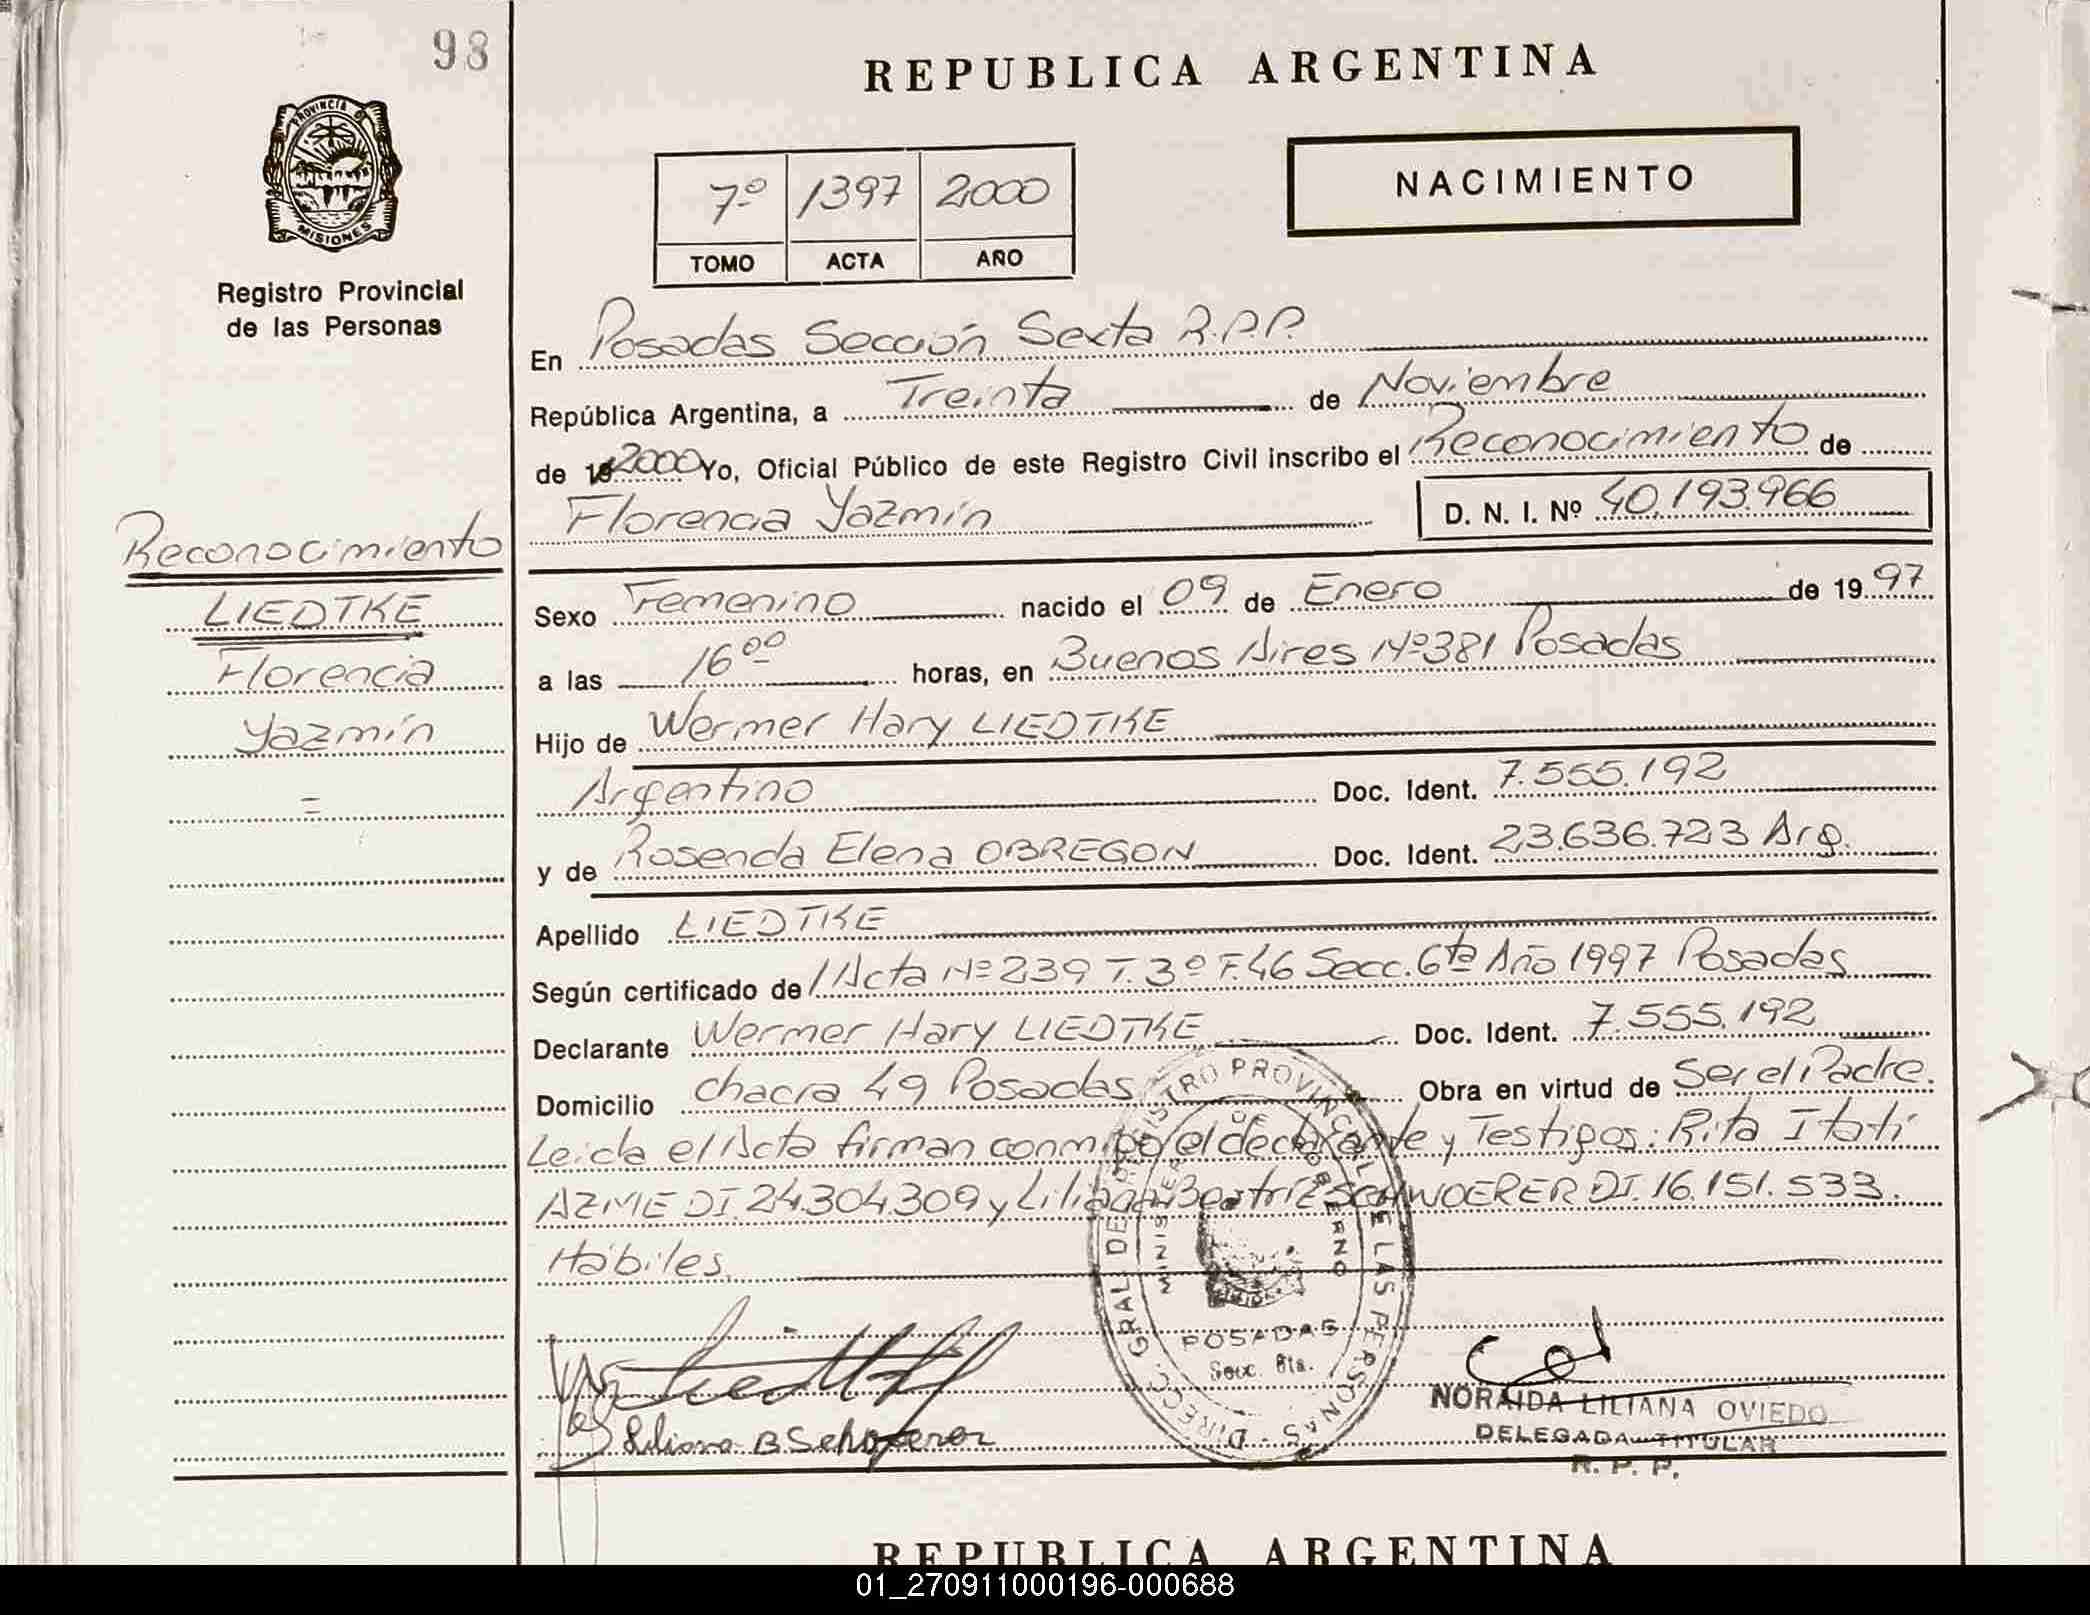 98
REPUBLICA ARGENTINA
PROVINCIA DE
MISIONES
Registro Provincial
de las Personas
7º 1397 2000
TOMO ACTA AÑO
NACIMIENTO
En Posadas Sección Sexta R.P.P.
República Argentina, a Treinta de Noviembre
de 2000 Yo, Oficial Público de este Registro Civil inscribo el Reconocimiento de
Florencia Yazmín D. N. I. Nº 40.193.966
Reconocimiento
LIEDTKE
Florencia
Yazmín
=
Sexo Femenino nacido el 09 de Enero de 1997
a las 16⁰⁰ horas, en Buenos Aires Nº 381 Posadas
Hijo de Wermer Hary LIEDTKE
Argentino Doc. Ident. 7.555.192
y de Rosenda Elena OBREGON Doc. Ident. 23.636.723 Arg.
Apellido LIEDTKE
Según certificado de Acta Nº 239 T. 3º F. 46 Secc. 6ta Año 1997 Posadas
Declarante Wermer Hary LIEDTKE Doc. Ident. 7.555.192
Domicilio chacra 49 Posadas Obra en virtud de Ser el Padre.
Leida el Acta firman conmigo el declarante y Testigos: Rita Itatí
AZME DI. 24.304.309 y Liliana Beatriz SCHWOERER DI. 16.151.533.
Hábiles.
DIRECC. GRAL. DE REGISTRO PROVINCIAL DE LAS PERSONAS
MINISTERIO DE GOBIERNO
POSADAS
Secc. 6ta.
Liliana B Schwoerer
NORAIDA LILIANA OVIEDO
DELEGADA TITULAR
R. P. P.
REPUBLICA ARGENTINA
01_270911000196-000688